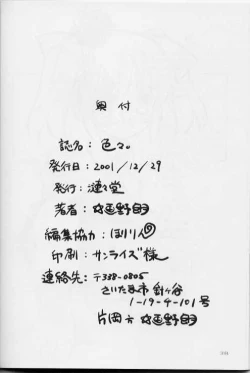 奥付
誌名：色々。
発行日：2001/12/29
発行：漣々堂
著者：
編集協力：ほりりん
印刷：サンライズ様
連絡先：〒338-0805
さいたま市
1-19-4-101号
片岡方